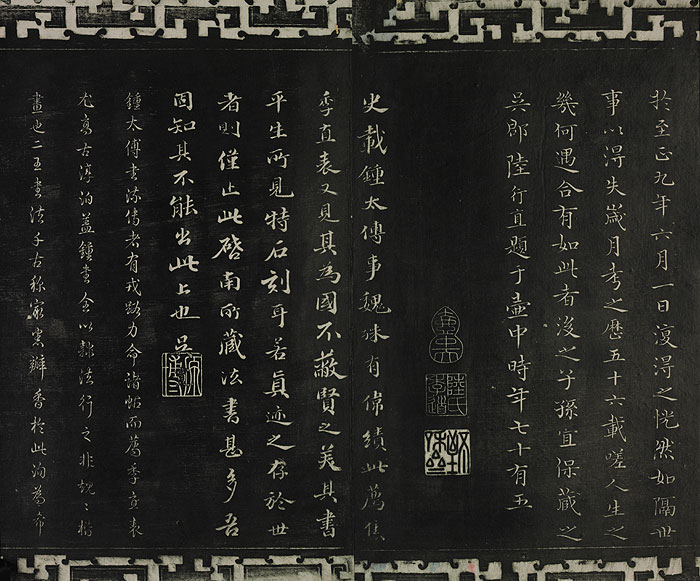 於至正九年六月一日復得之恍然如隔世
事以得失歲月考之歷五十六載嗟人生之
幾何遇合有如此者後之子孫宜保藏之
吳郡陸行直題于壺中時年七十有五
史載鍾太傅事魏殊有偉績此薦焦
季直表又見其為國不蔽賢之美其書
平生所見特石刻耳若真迹之存於世
者則僅止此啓南所藏法書甚多吾
固知其不能出此上也 吳
鍾太傅書流傳者有戎路力命諸帖而薦季直表
尤高古淳泊蓋鍾書全以隸法行之非規規楷
畫也二王書法千古稱家實瓣香於此洵為希